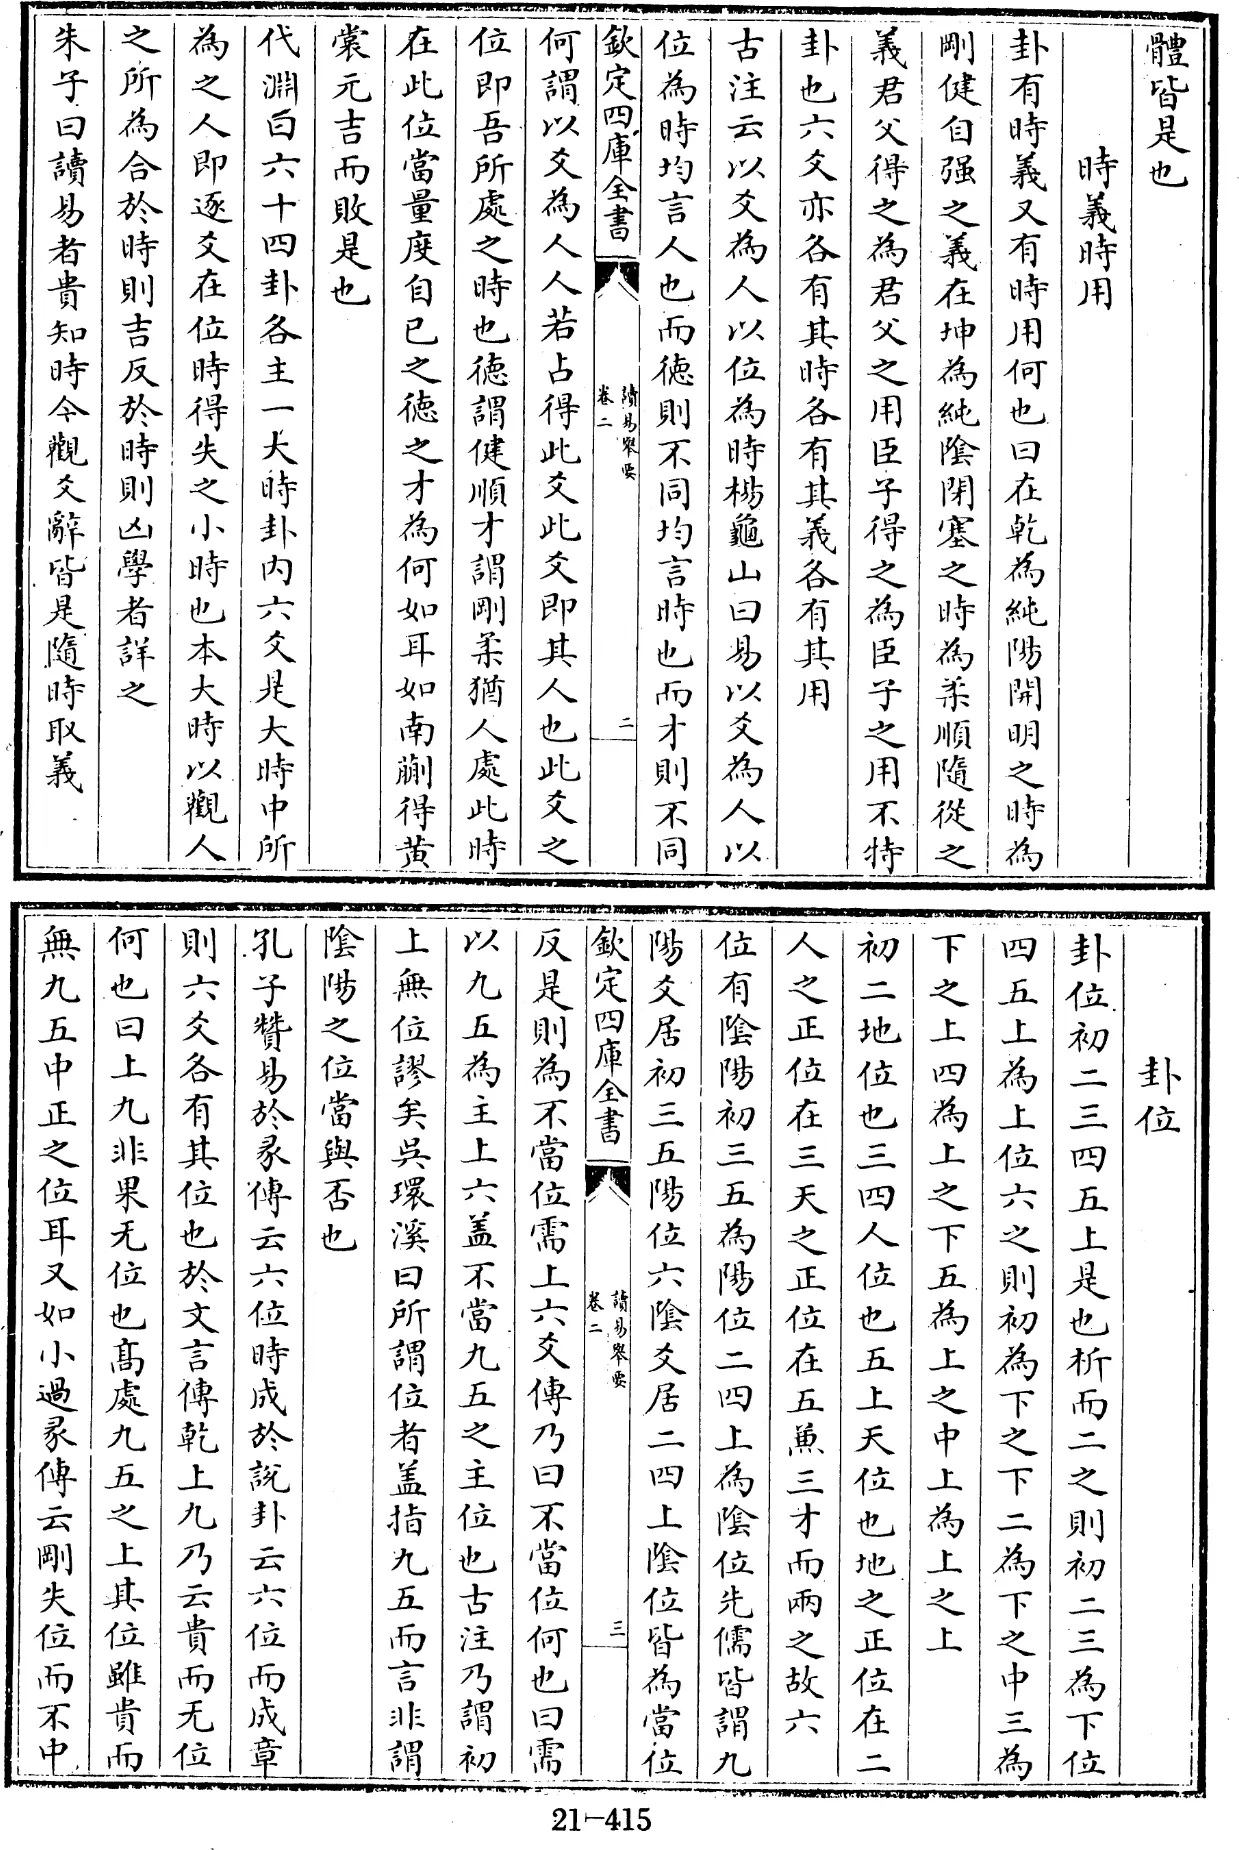 體皆是也
時義時用
卦有時義又有時用何也曰在乾為純陽開明之時為
剛健自强之義在坤為純陰閉塞之時為柔順隨從之
義君父得之為君父之用臣子得之為臣子之用不特
卦也六爻亦各有其時各有其義各有其用
古注云以爻為人以位為時楊龜山曰易以爻為人以
位為時均言人也而徳則不同均言時也而才則不同
欽定四庫全書
讀易舉要
卷二
二
何謂以爻為人人若占得此爻此爻即其人也此爻之
位即吾所處之時也徳謂健順才謂剛柔猶人處此時
在此位當量度自已之徳之才為何如耳如南蒯得黄
裳元吉而敗是也
代淵曰六十四卦各主一大時卦内六爻是大時中所
為之人即逐爻在位時得失之小時也本大時以觀人
之所為合於時則吉反於時則凶學者詳之
朱子曰讀易者貴知時今觀爻辭皆是隨時取義
卦位
卦位初二三四五上是也析而二之則初二三為下位
四五上為上位六之則初為下之下二為下之中三為
下之上四為上之下五為上之中上為上之上
初二地位也三四人位也五上天位也地之正位在二
人之正位在三天之正位在五兼三才而兩之故六
位有陰陽初三五為陽位二四上為陰位先儒皆謂九
陽爻居初三五陽位六陰爻居二四上陰位皆為當位
欽定四庫全書
讀易舉要
卷二
三
反是則為不當位需上六爻傳乃曰不當位何也曰需
以九五為主上六盖不當九五之主位也古注乃謂初
上無位謬矣吳環溪曰所謂位者盖指九五而言非謂
陰陽之位當與否也
孔子贊易於彖傳云六位時成於說卦云六位而成章
則六爻各有其位也於文言傳乾上九乃云貴而无位
何也曰上九非果无位也髙處九五之上其位雖貴而
無九五中正之位耳又如小過彖傳云剛失位而不中
21-415